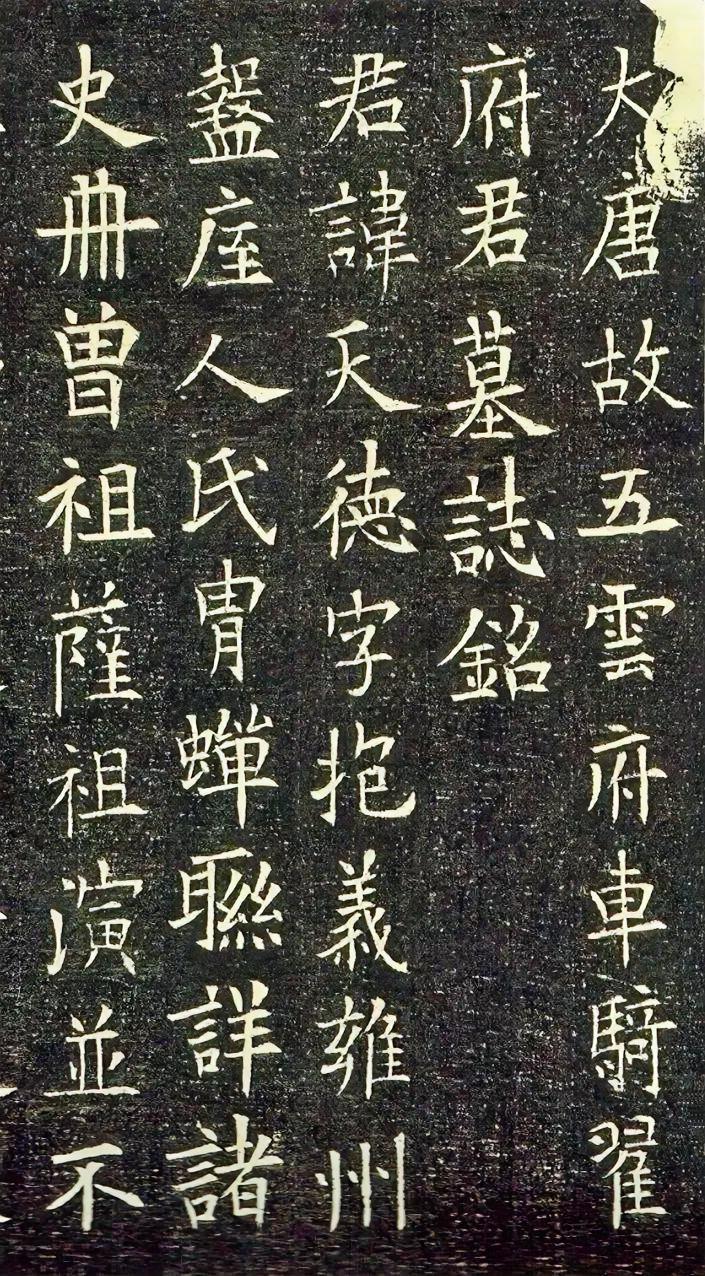 大唐故五雲府車騎翟
府君墓誌銘
君諱天德字抱義雍州
盩厔人氏冑蟬聯詳諸
史冊曾祖薩祖演並不